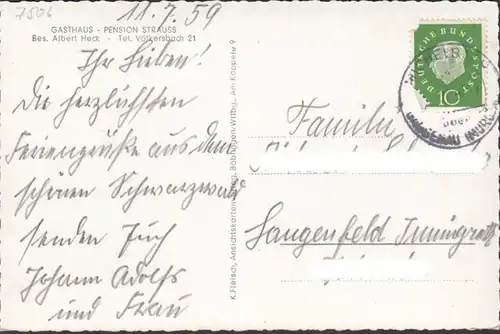 7506
11.7.59
GASTHAUS - PENSION STRAUSS
Bes. Albert Heck - Tel. Völkersbach 21
Ihr Lieben!
Die herzlichsten
Feriengrüße aus dem
schönen Schwarzwald
senden Euch
Johann Adolfs
und Frau
K.Fleisch, Ansichtskartenverlag, Böblingen/Wttbg., Am Käppele 9
DEUTSCHE BUNDESPOST
10
über
Familie
Langenfeld Immigrath